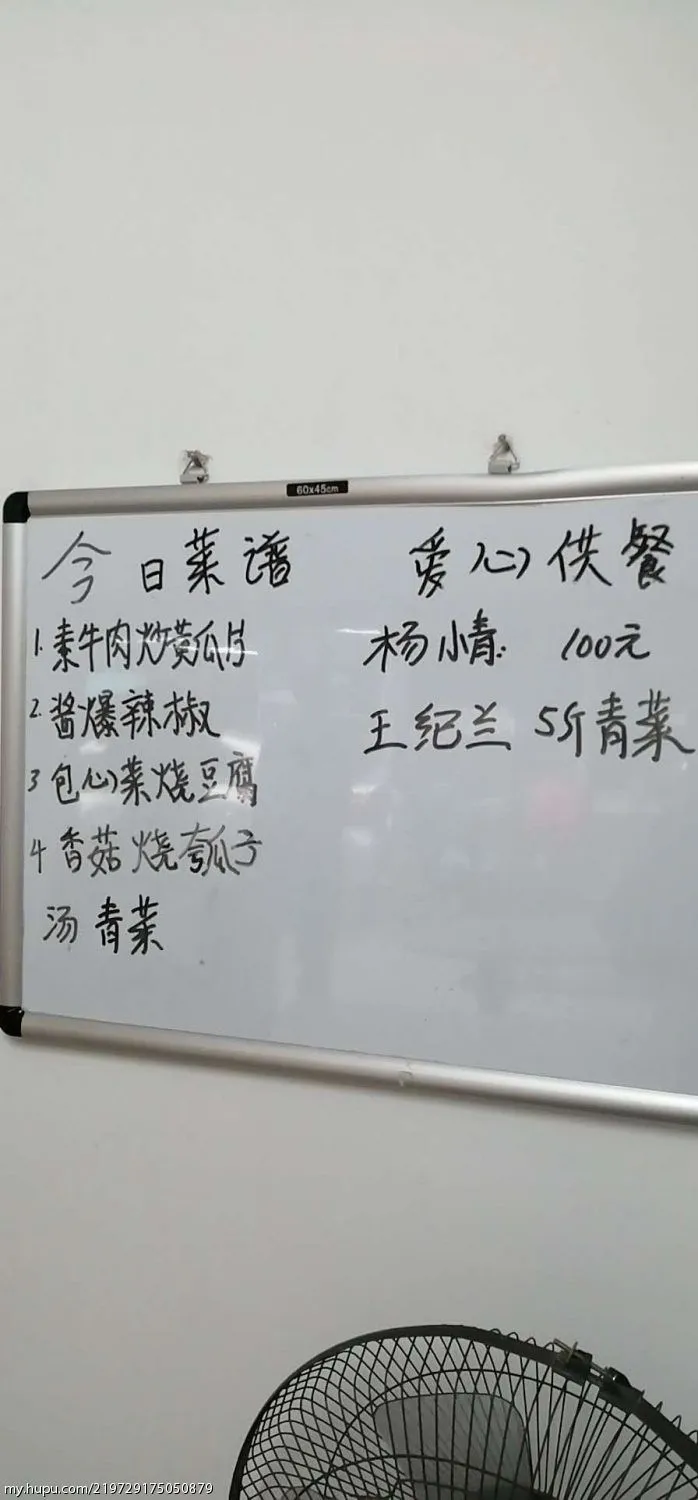 60x45cm
今日菜谱
1. 素牛肉炒黄瓜片
2. 酱爆辣椒
3 包心菜烧豆腐
4 香菇烧夸瓜子
汤 青菜
爱心供餐
杨小青: 100元
王纪兰 5斤青菜
my.hupu.com/219729175050879